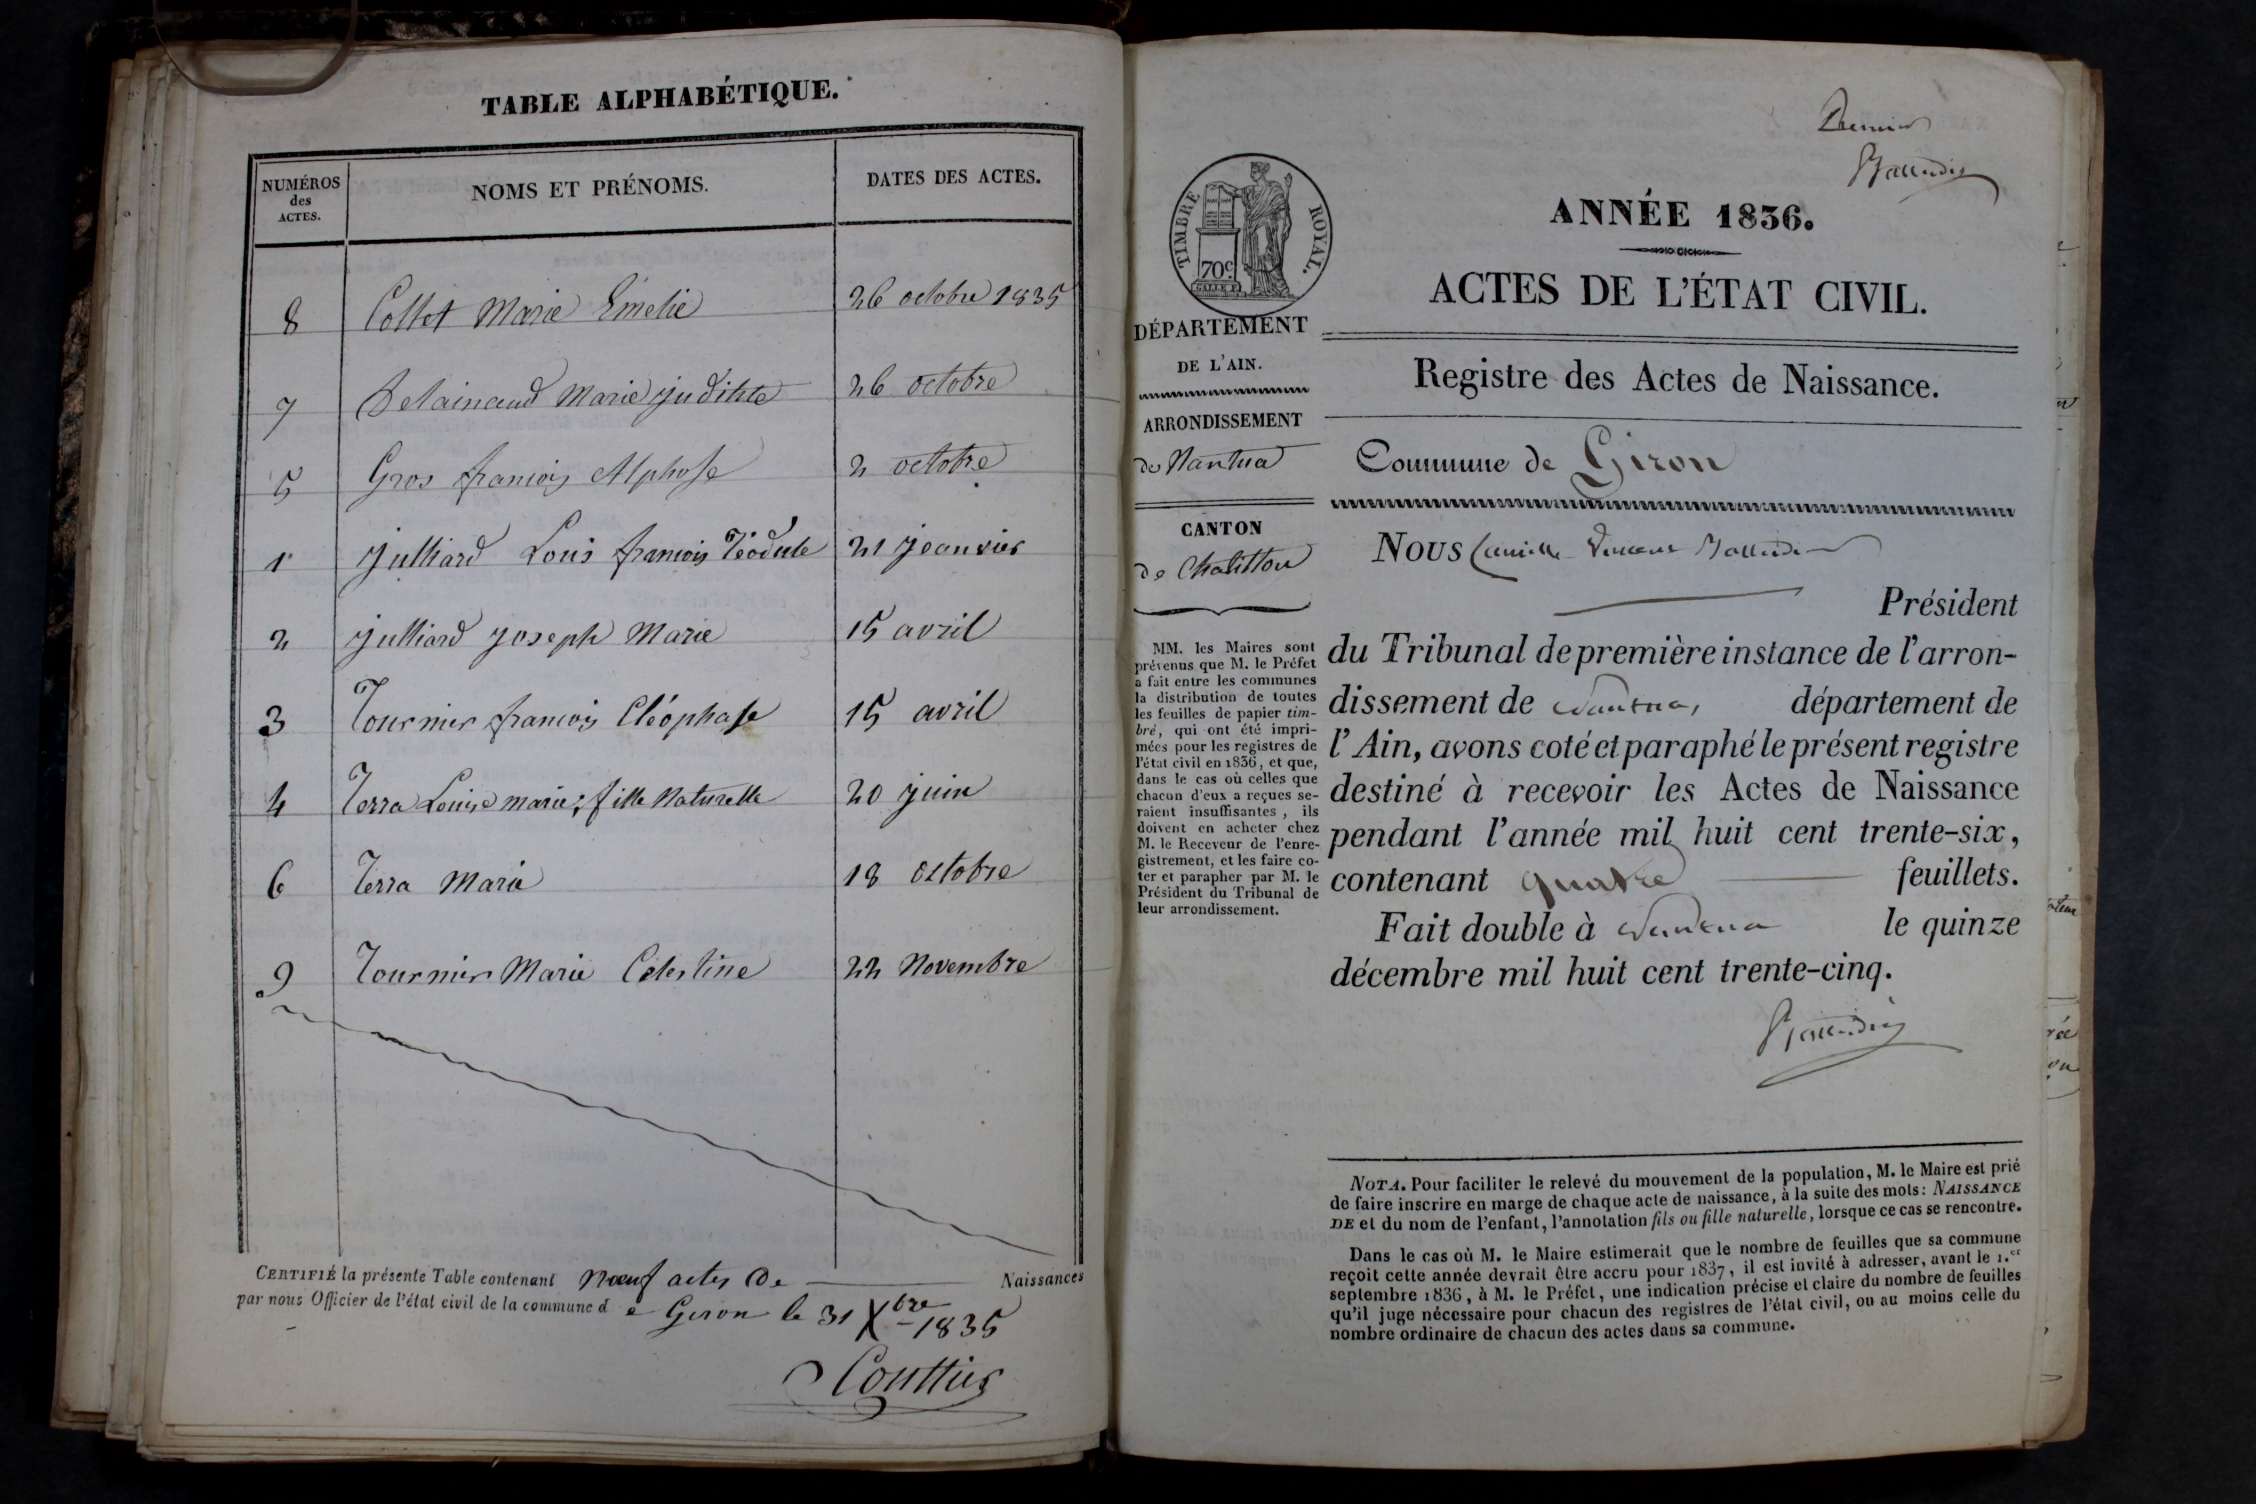 TABLE ALPHABÉTIQUE.
NUMÉROS des ACTES.
NOMS ET PRÉNOMS.
DATES DES ACTES.
8 Collet Marie Emelie 26 octobre 1835
7 Delainaud Marie juditte 26 octobre
5 Gros francois Alphose 2 octobre
1 julliard Louis francois Téodule 21 jeanvier
2 julliard joseph Marie 15 avril
3 Tournier francois Cléophase 15 avril
4 Terra Louise marie; fille Naturelle 20 juin
6 Terra Marie 18 octobre
9 Tournier Marie Celestine 22 Novembre
CERTIFIÉ la présente Table contenant Nœuf actes De Naissances
par nous Officier de l'état civil de la commune d e Giron le 31 Xbre 1835
Coutties
Premier
ANNÉE 1836.
TIMBRE ROYAL.
70c.
ACTES DE L'ÉTAT CIVIL.
DÉPARTEMENT
DE L'AIN.
ARRONDISSEMENT
de Nantua
CANTON
de Chatillon
MM. les Maires sont
prévenus que M. le Préfet
a fait entre les communes
la distribution de toutes
les feuilles de papier tim-
bré, qui ont été impri-
mées pour les registres de
l'état civil en 1836, et que,
dans le cas où celles que
chacun d'eux a reçues se-
raient insuffisantes, ils
doivent en acheter chez
M. le Receveur de l'enre-
gistrement, et les faire co-
ter et parapher par M. le
Président du Tribunal de
leur arrondissement.
Registre des Actes de Naissance.
Commune de Giron
NOUS Camille Vincent
Président
du Tribunal de première instance de l'arron-
dissement de Nantua, département de
l'Ain, avons coté et paraphé le présent registre
destiné à recevoir les Actes de Naissance
pendant l'année mil huit cent trente-six,
contenant quatre feuillets.
Fait double à Nantua le quinze
décembre mil huit cent trente-cinq.
NOTA. Pour faciliter le relevé du mouvement de la population, M. le Maire est prié
de faire inscrire en marge de chaque acte de naissance, à la suite des mots: NAISSANCE
DE et du nom de l'enfant, l'annotation fils ou fille naturelle, lorsque ce cas se rencontre.
Dans le cas où M. le Maire estimerait que le nombre de feuilles que sa commune
reçoit cette année devrait être accru pour 1837, il est invité à adresser, avant le 1.er
septembre 1836, à M. le Préfet, une indication précise et claire du nombre de feuilles
qu'il juge nécessaire pour chacun des registres de l'état civil, ou au moins celle du
nombre ordinaire de chacun des actes dans sa commune.